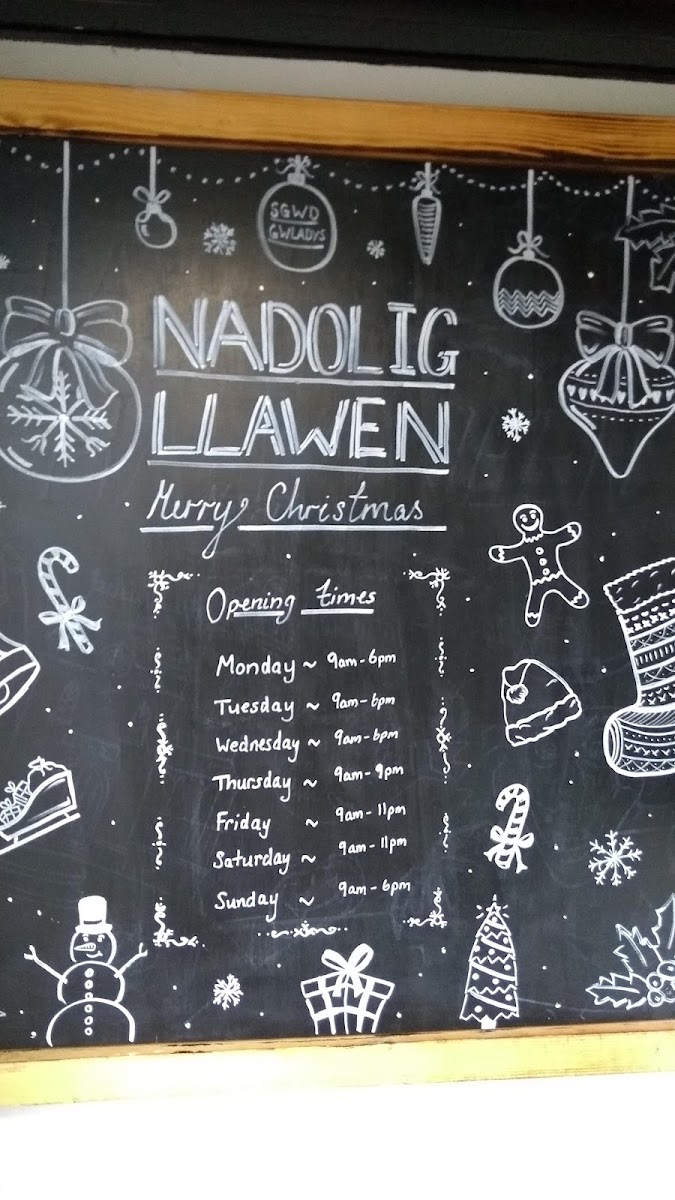 SGWD
GWLADYS
NADOLIG
LLAWEN
Merry Christmas
Opening times
Monday ~ 9am-6pm
Tuesday ~ 9am-6pm
Wednesday ~ 9am-6pm
Thursday ~ 9am-9pm
Friday ~ 9am-11pm
Saturday ~ 9am-11pm
Sunday ~ 9am-6pm